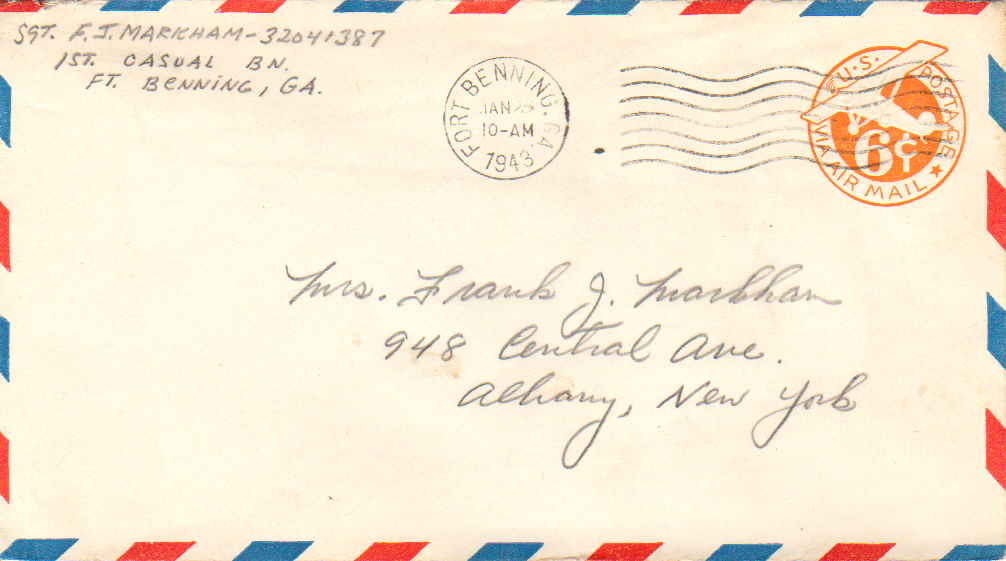 SGT. F. J. MARKHAM - 32041387
1ST. CASUAL BN.
FT. BENNING, GA.
FORT BENNING. GA.
JAN
10-AM
1943
U.S. POSTAGE
6¢
VIA AIR MAIL
Mrs. Frank J. Markham
948 Central Ave.
Albany, New York